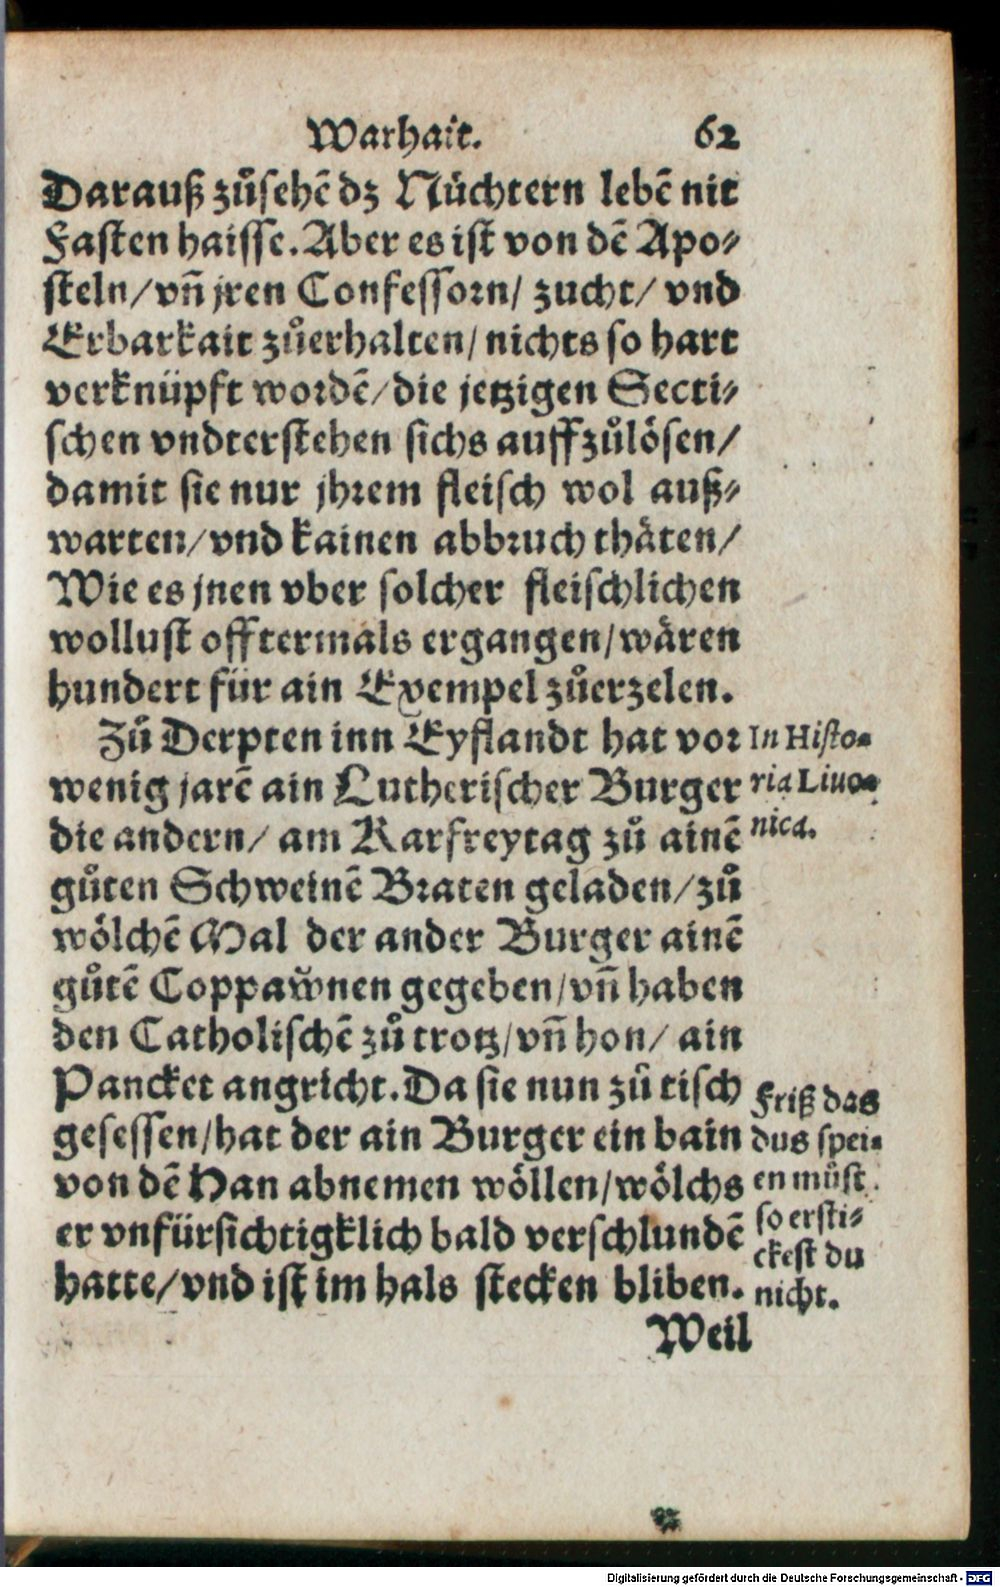 Warhait. 62
Darauß zůsehē dz Nüchtern lebē nit
Fasten haisse. Aber es ist von dē Apo-
steln/vñ jren Confessorn/ zucht/ vnd
Erbarkait zůerhalten/ nichts so hart
verknüpft wordē/die jetzigen Secti-
schen vndterstehen sichs auffzůlösen/
damit sie nur jhrem fleisch wol auß-
warten/vnd kainen abbruch thäten/
Wie es jnen vber solcher fleischlichen
wollust offtermals ergangen/wären
hundert für ain Exempel zůerzelen.
Zů Derpten inn Eyflandt hat vor
wenig jarē ain Lutherischer Burger
die andern/ am Karfreytag zů ainē
gůten Schweinē Braten geladen/zů
wölchē Mal der ander Burger ainē
gůtē Coppaw̃nen gegeben/vñ haben
den Catholischē zů trotz/vñ hon/ ain
Pancket angricht. Da sie nun zů tisch
gesessen/hat der ain Burger ein bain
von dē Han abnemen wöllen/wölchs
er vnfürsichtigklich bald verschlundē
hatte/vnd ist im hals stecken bliben.
Weil
In Histo-
ria Liuo-
nica.
Friß das
dus spei-
en müst
so ersti-
ckest du
nicht.
Digitalisierung gefördert durch die Deutsche Forschungsgemeinschaft - DFG